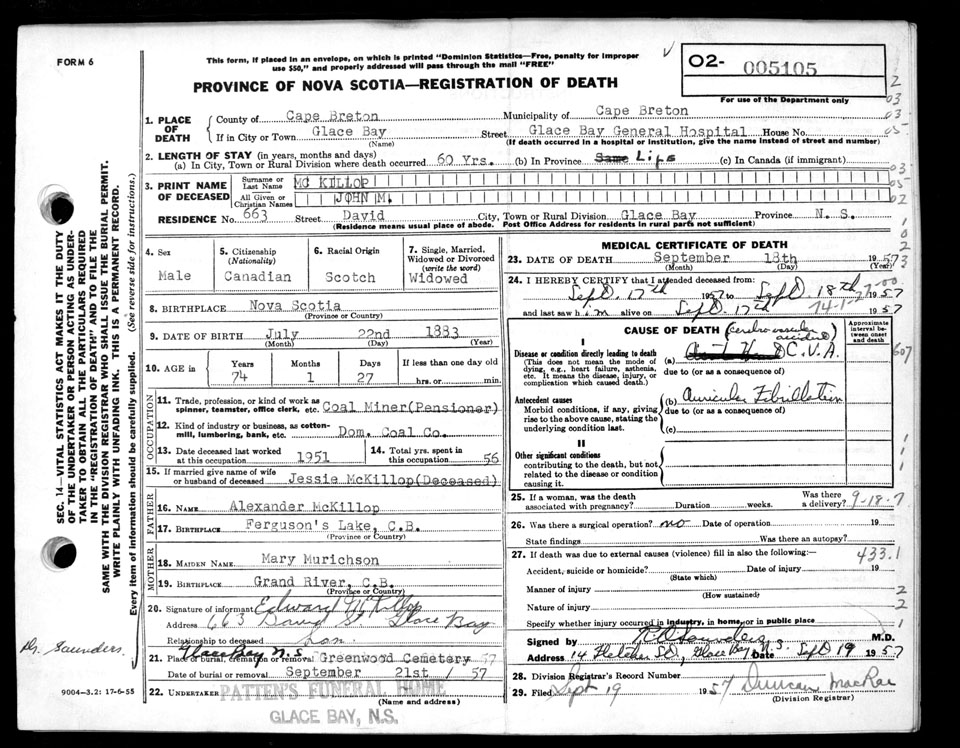 FORM 6
This form, if placed in an envelope, on which is printed "Dominion Statistics—Free, penalty for improper
use $50," and properly addressed will pass through the mail "FREE"
PROVINCE OF NOVA SCOTIA—REGISTRATION OF DEATH
02- 005105
For use of the Department only
1. PLACE OF DEATH
County of Cape Breton Municipality of Cape Breton
If in City or Town Glace Bay Street Glace Bay General Hospital House No.
(Name) (If death occurred in a hospital or institution, give the name instead of street and number)
2. LENGTH OF STAY (in years, months and days)
(a) In City, Town or Rural Division where death occurred 60 Yrs. (b) In Province Same Life (c) In Canada (if immigrant)
3. PRINT NAME OF DECEASED
Surname or Last Name MC KILLOP
All Given or Christian Names JOHN M.
RESIDENCE No. 663 Street David City, Town or Rural Division Glace Bay Province N. S.
(Residence means usual place of abode. Post Office Address for residents in rural parts not sufficient)
4. Sex
Male
5. Citizenship
(Nationality)
Canadian
6. Racial Origin
Scotch
7. Single, Married, Widowed or Divorced
(write the word)
Widowed
8. BIRTHPLACE Nova Scotia
(Province or Country)
9. DATE OF BIRTH July 22nd 1883
(Month) (Day) (Year)
10. AGE in Years Months Days If less than one day old
74 1 27 hrs. or min.
OCCUPATION
11. Trade, profession, or kind of work as
spinner, teamster, office clerk, etc. Coal Miner(Pensioner)
12. Kind of industry or business, as cotton-
mill, lumbering, bank, etc. Dom. Coal Co.
13. Date deceased last worked
at this occupation 1951
14. Total yrs. spent in
this occupation 56
15. If married give name of wife
or husband of deceased Jessie McKillop(Deceased)
FATHER
16. NAME Alexander McKillop
17. BIRTHPLACE Ferguson's Lake, C.B.
(Province or Country)
MOTHER
18. MAIDEN NAME Mary Murichson
19. BIRTHPLACE Grand River, C.B.
(Province or Country)
20. Signature of informant Edward McKillop
Address 663 David St Glace Bay
Relationship to deceased son
Glace Bay N.S
21. Place of burial, cremation or removal Greenwood Cemetery 57
Date of burial or removal September 21st / 57
22. UNDERTAKER PATTEN'S FUNERAL HOME
(Name and address)
GLACE BAY, N.S.
MEDICAL CERTIFICATE OF DEATH
23. DATE OF DEATH September 18th 1957
(Month) (Day) (Year)
24. I HEREBY CERTIFY that I attended deceased from:
Sept. 17th 1957 to Sept. 18th 1957
and last saw him alive on Sept. 17th 1957
CAUSE OF DEATH (Cerebrovascular accident)
Approximate interval between onset and death
I
Disease or condition directly leading to death
(This does not mean the mode of dying, e.g., heart failure, asthenia, etc. It means the disease, injury, or complication which caused death.)
(a) C.V.A.
due to (or as a consequence of)
Antecedent causes
Morbid conditions, if any, giving rise to the above cause, stating the underlying condition last.
(b) Auricular Fibrillation
due to (or as a consequence of)
(c)
II
Other significant conditions
contributing to the death, but not related to the disease or condition causing it.
25. If a woman, was the death
associated with pregnancy? Duration weeks. Was there a delivery? 9-18-7
26. Was there a surgical operation? no Date of operation 19
State findings Was there an autopsy?
27. If death was due to external causes (violence) fill in also the following:— 433.1
Accident, suicide or homicide? Date of injury 19
(State which)
Manner of injury
(How sustained)
Nature of injury
Specify whether injury occurred in industry, in home, or in public place
Signed by R D Saunders M.D.
Address 14 Fletcher St, Glace Bay N.S. Date Sept 19 1957
28. Division Registrar's Record Number
29. Filed Sept 19 1957 Duncan MacRae
(Division Registrar)
SEC. 14—VITAL STATISTICS ACT MAKES IT THE DUTY
OF THE UNDERTAKER OR PERSON ACTING AS UNDER-
TAKER TO OBTAIN ALL THE PARTICULARS REQUIRED
IN THE "REGISTRATION OF DEATH" AND TO FILE THE
SAME WITH THE DIVISION REGISTRAR WHO SHALL ISSUE THE BURIAL PERMIT.
WRITE PLAINLY WITH UNFADING INK. THIS IS A PERMANENT RECORD.
Every item of information should be carefully supplied. (See reverse side for instructions.)
Dr. Saunders.
9004—3.2: 17-6-55